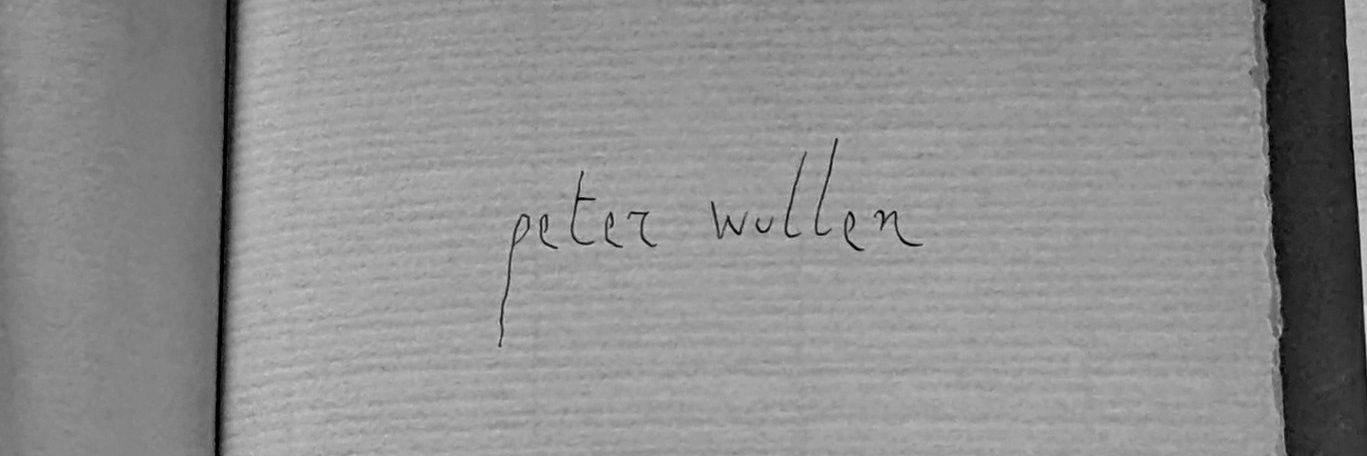 peter wullen